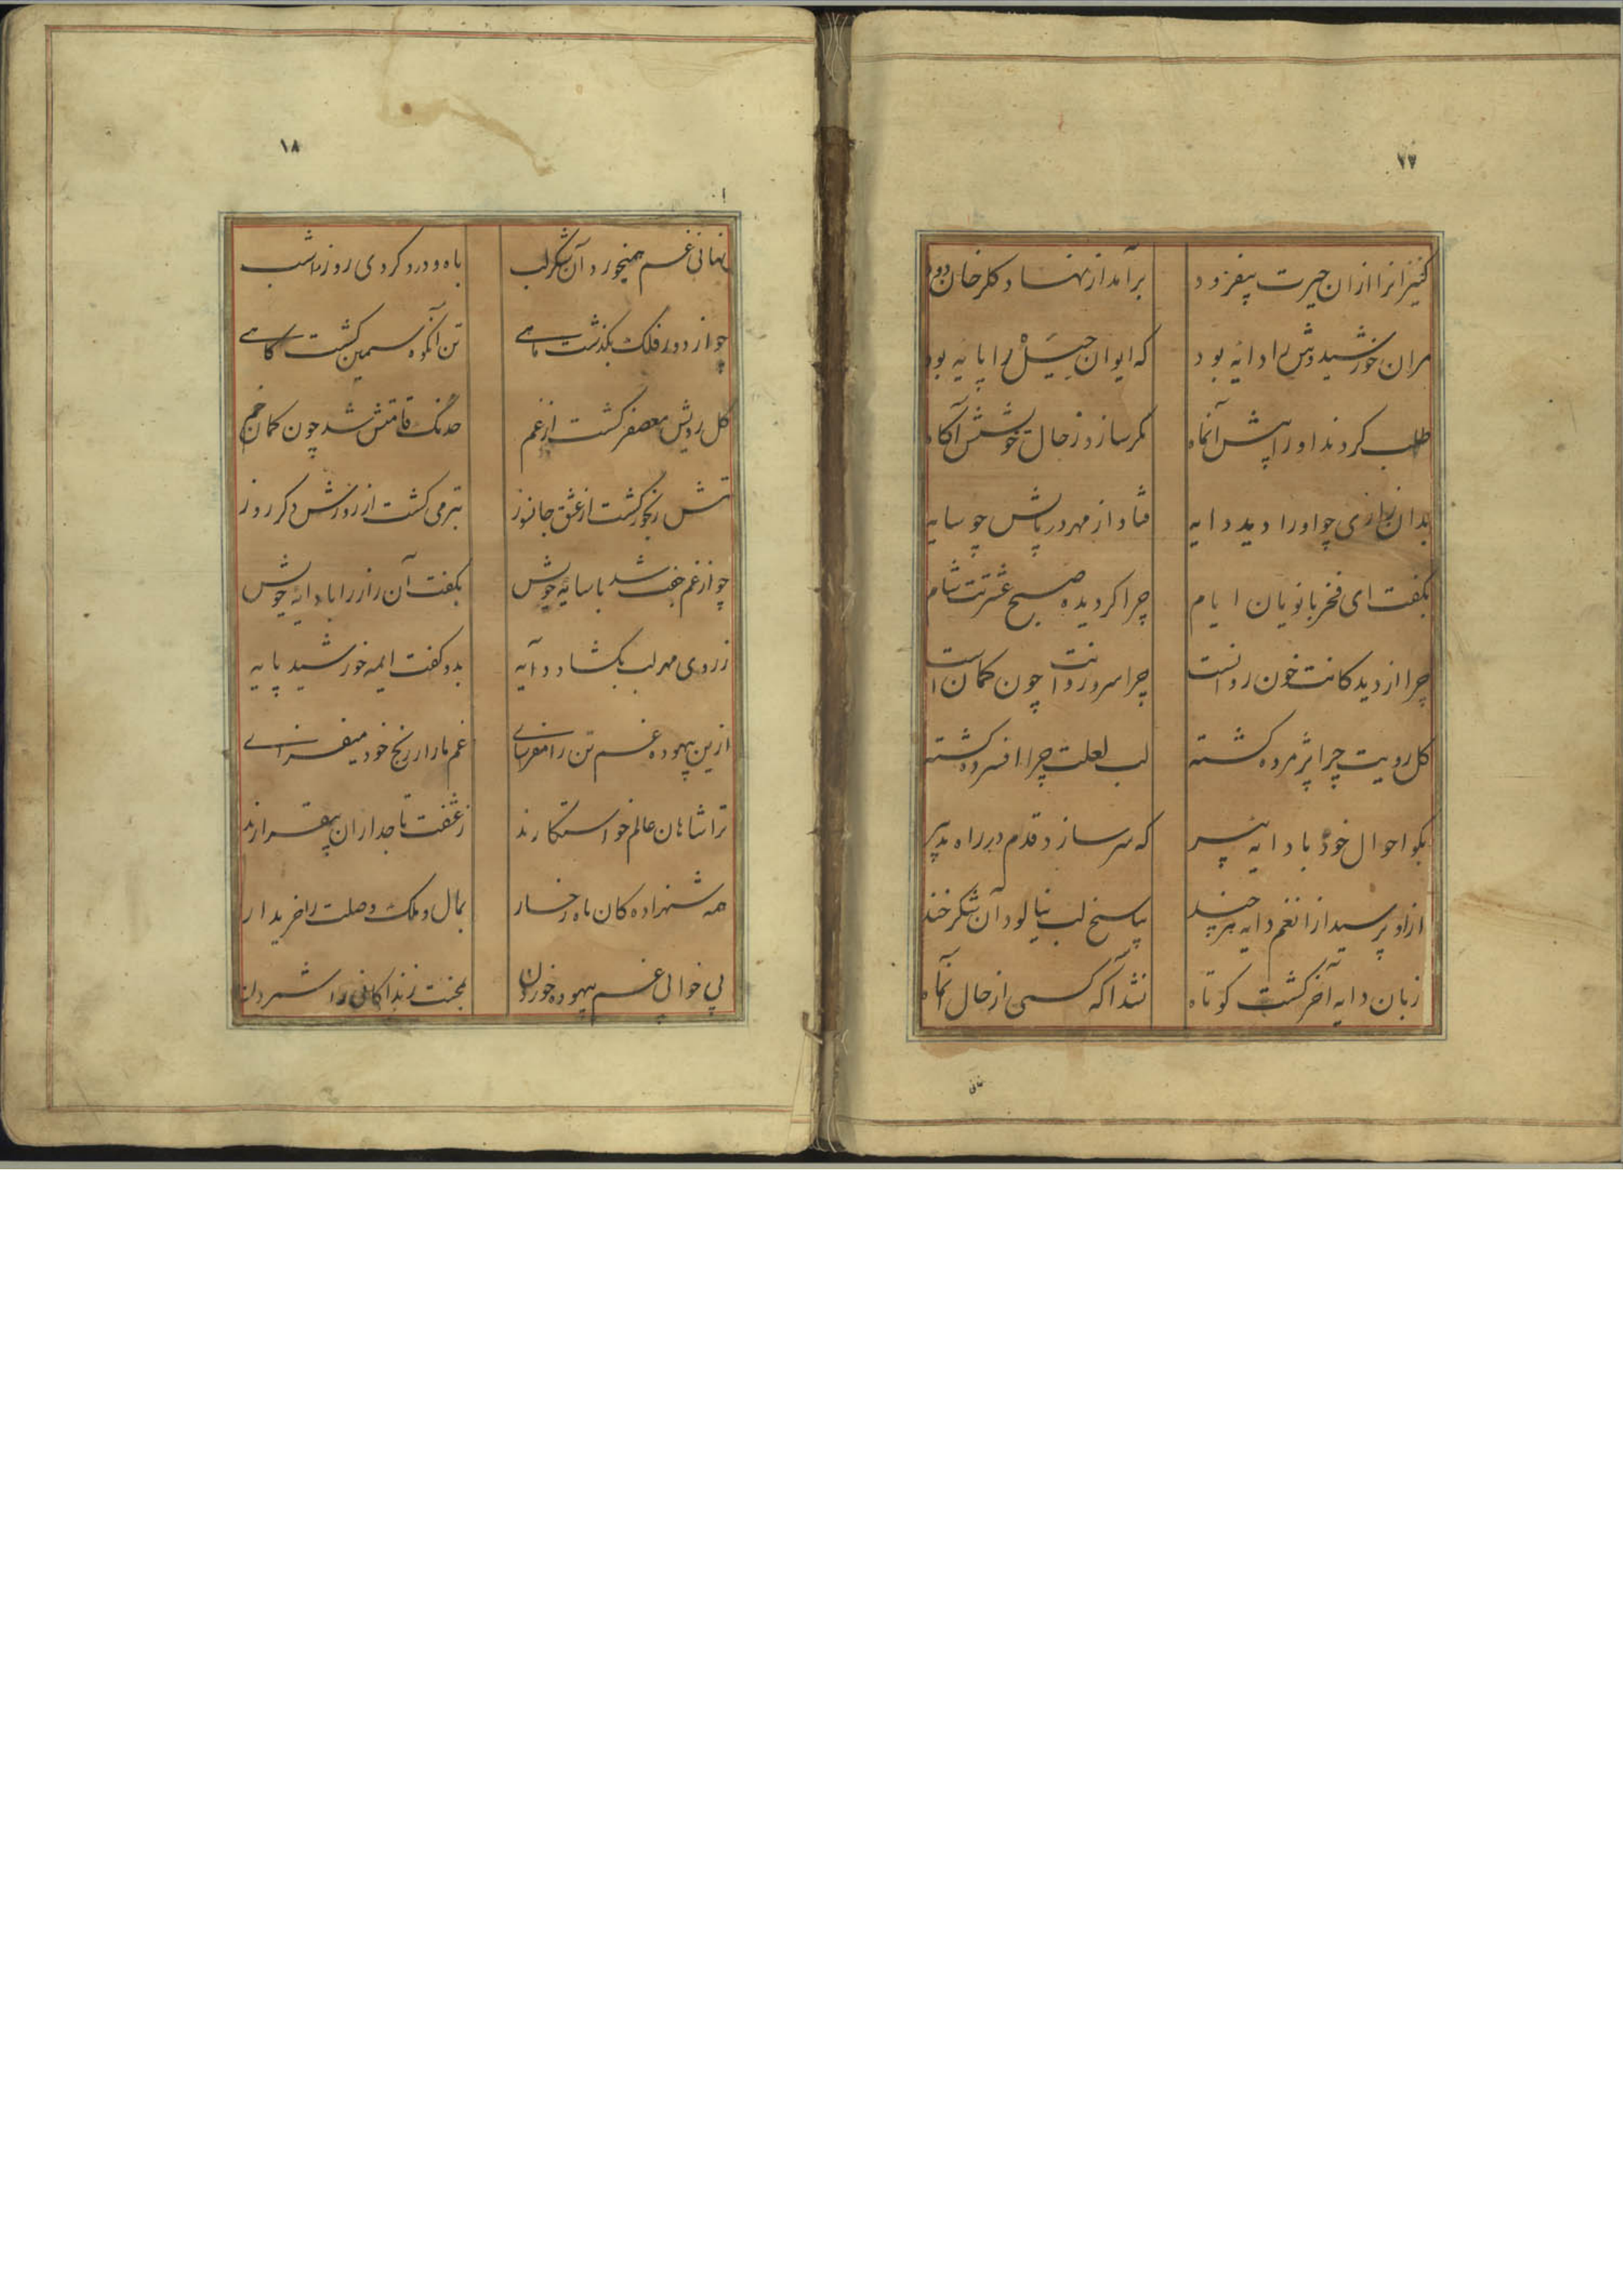 ۲۷
کنیزانرا ازان حیرت بیفزود برآمد از نهاد گلرخان دود
مران خورشیدوش را دایه بود که ایوان حیل را پایه بود
طلب کردند اورا پیش آنماه مگر سازد ز حال خوشش آگاه
بدان زاری چو اورا دید دایه فتاد از مهر در پایش چو سایه
بگفت ای فخر بانویان ایام چرا گردیده صبح عشرتت شام
چرا از دیدگانت خون روانست چرا سرو روانت چون کمان است
گل رویت چرا پژمرده گشته لب لعلت چرا افسرده گشته
بگو احوال خود با دایه پیر که سر سازد قدم در راه تدبیر
ازو پرسید ازانغم دایه هرچند بپاسخ لب نیالود آن شکرخند
زبان دایه آخر گشت کوتاه نشد آگه کسی از حال آنماه
نهانی
۱۸
نهانی غم همیخورد آن شکرلب باه و درد کردی روز را شب
چو از دور فلک بگذشت ماهی تن آنکوه سیمین گشت کاهی
گل رویش معصفر گشت از غم خدنگ قامتش شد چون کمان خم
تنش رنجور گشت از عشق جانسوز بتر می گشت از روزش دگر روز
چو از غم جفت شد با سایهٔ خویش بگفت آن راز را با دایهٔ خویش
ز روی مهر لب بگشاد دایه بدو گفت ایمه خورشید پایه
ازین بیهوده غم تن را مفرسای غم ما را ز رنج خود میفزای
ترا شاهان عالم خواستگارند ز عشقت تاجداران بیقرارند
همه شهزاده کان ماه رخسار بمال و ملک وصلت را خریدار
پی خوابی غم بیهوده خوردن بمحنت زندگانی را شمردن